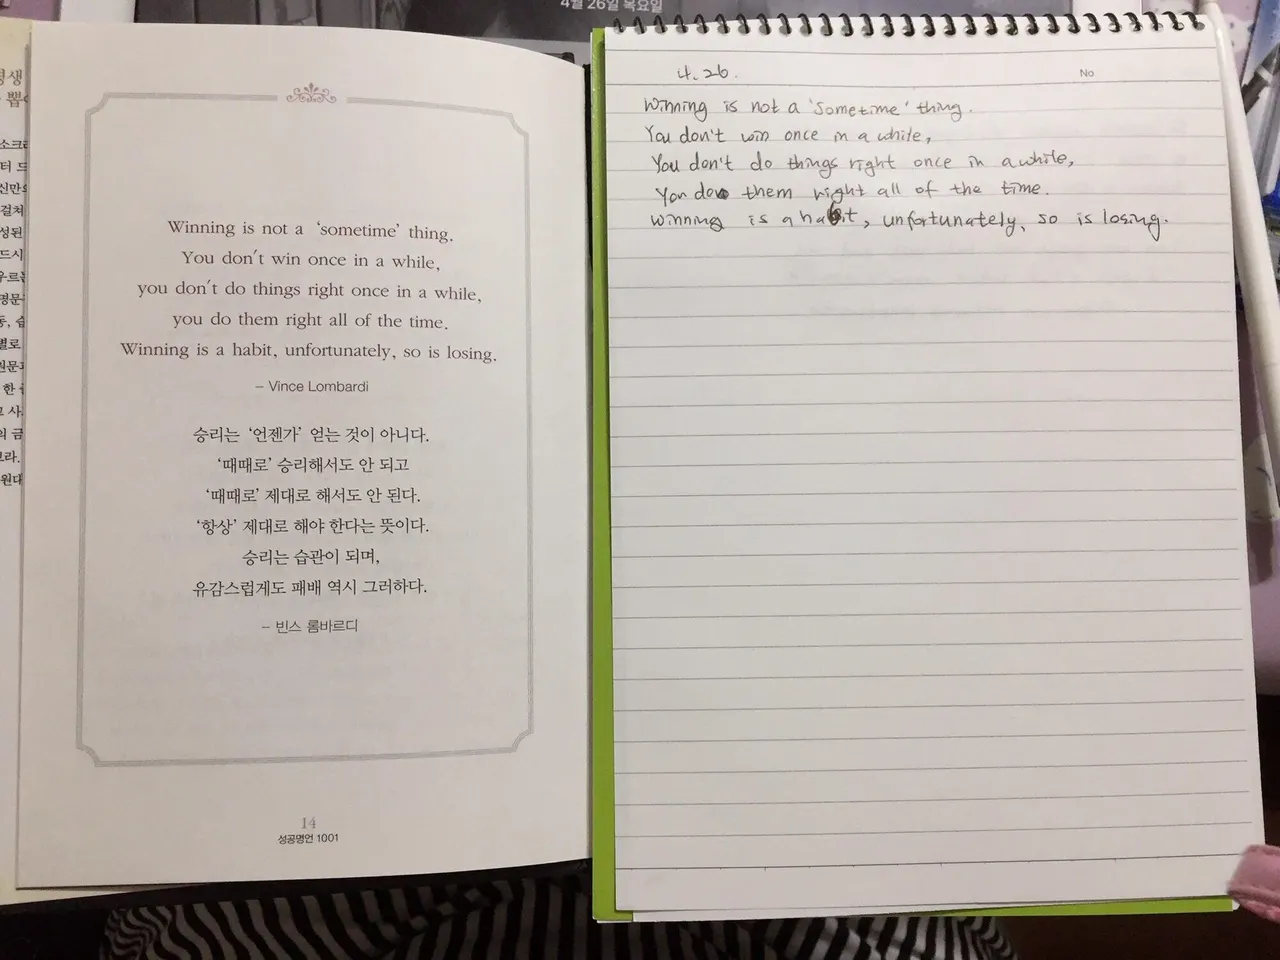 4월 26일 목요일
Winning is not a ‘sometime’ thing.
You don't win once in a while,
you don't do things right once in a while,
you do them right all of the time.
Winning is a habit, unfortunately, so is losing.
– Vince Lombardi
승리는 ‘언젠가’ 얻는 것이 아니다.
‘때때로’ 승리해서도 안 되고
‘때때로’ 제대로 해서도 안 된다.
‘항상’ 제대로 해야 한다는 뜻이다.
승리는 습관이 되며,
유감스럽게도 패배 역시 그러하다.
– 빈스 롬바르디
14
성공명언 1001
4. 26.
No
Winning is not a 'sometime' thing.
You don't win once in a while,
You don't do things right once in a while,
You do them right all of the time.
Winning is a habit, unfortunately, so is losing.